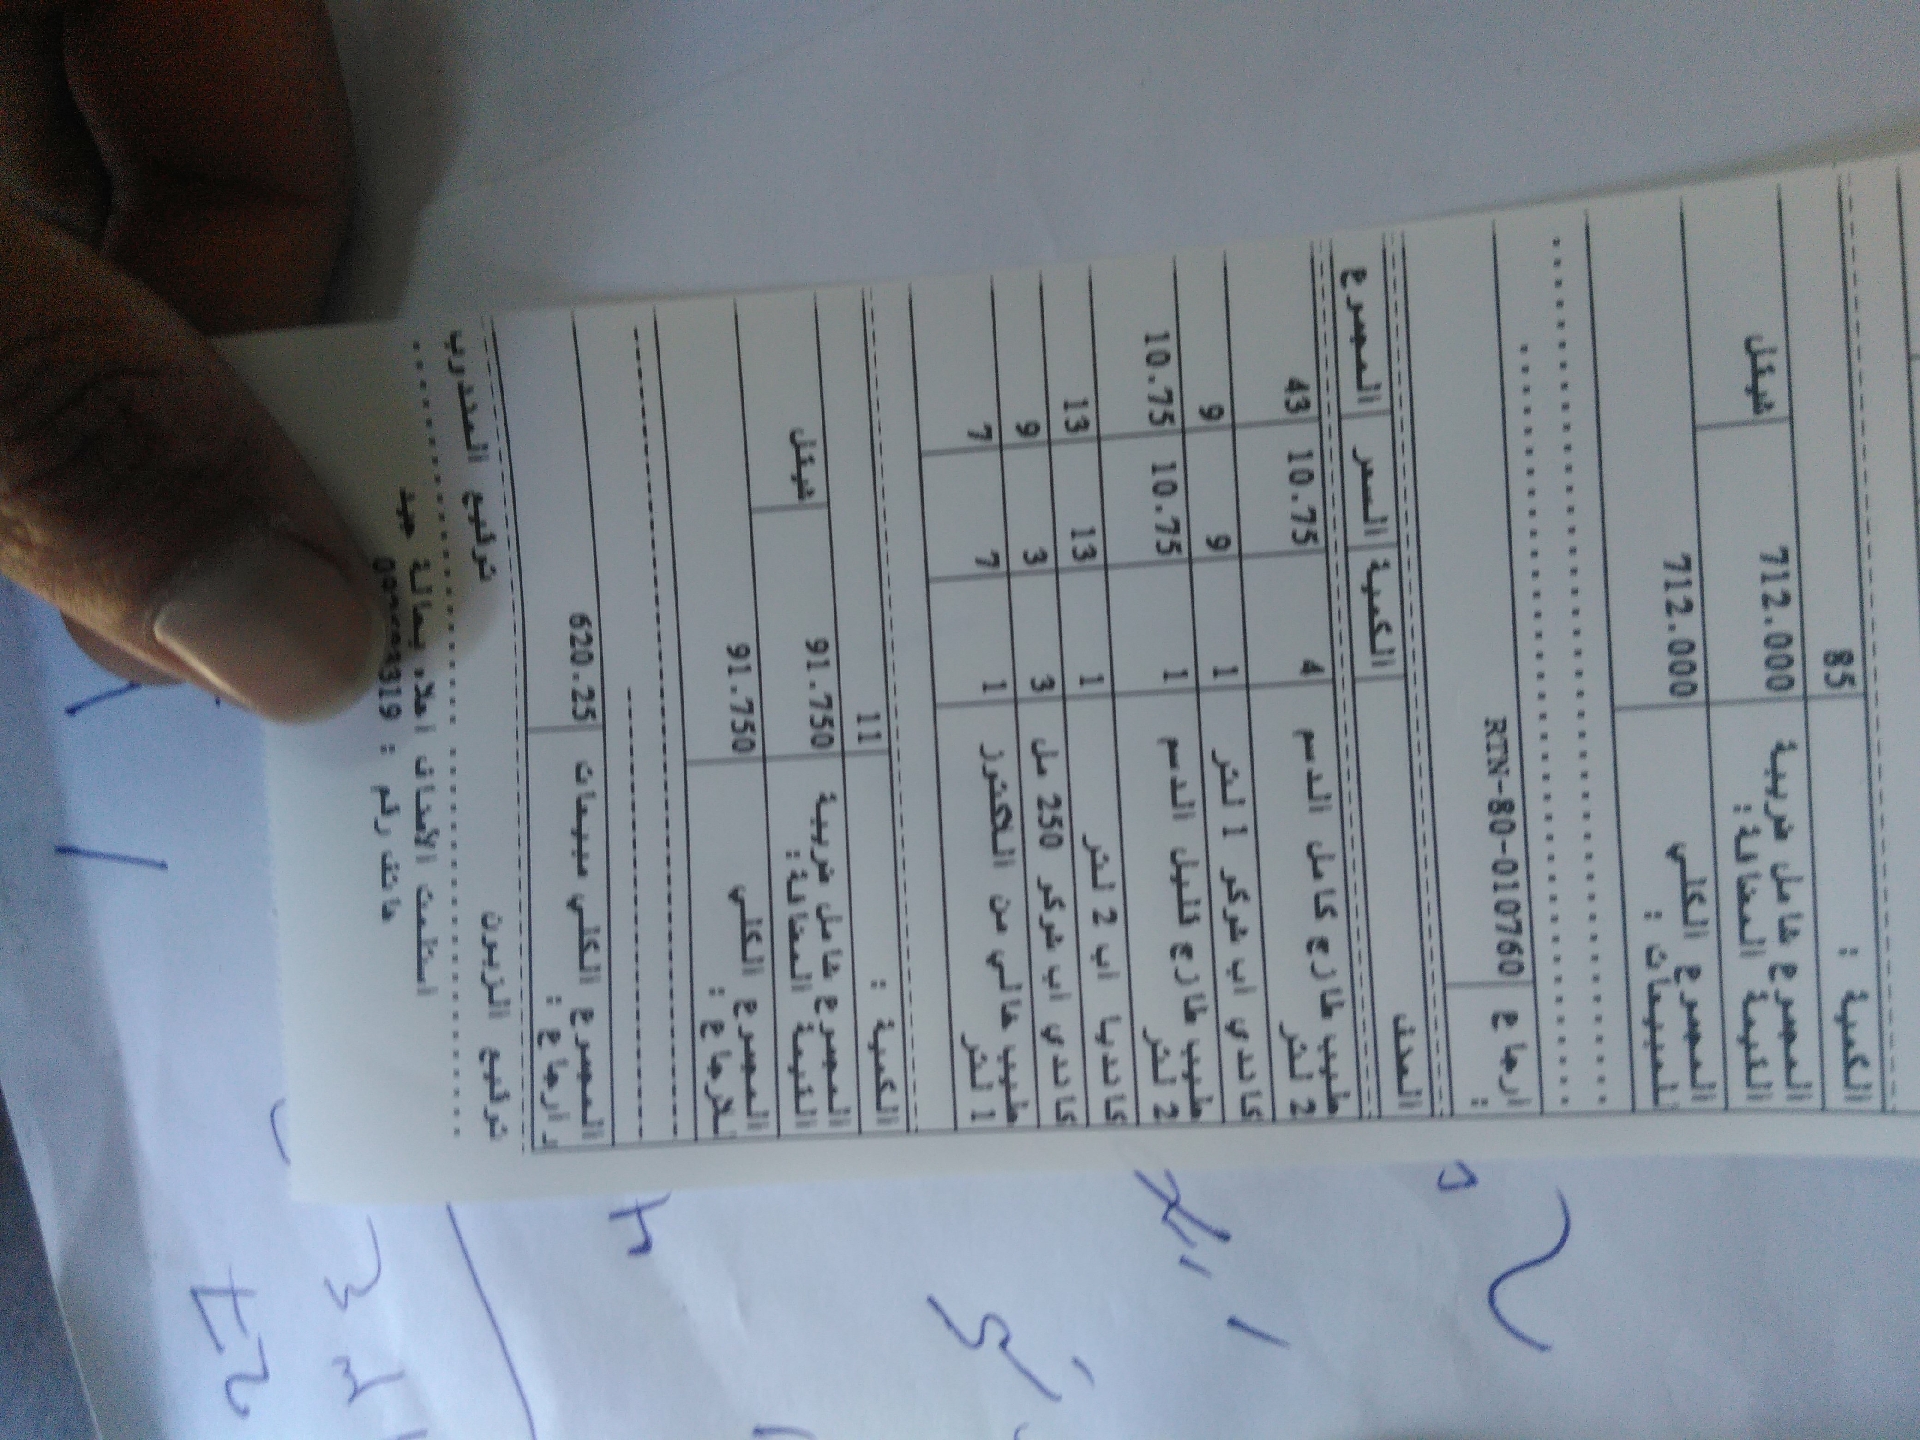 الكمية : 85
المجموع شامل ضريبة 712.000 شيكل
القيمة المضافة:
المجموع الكلي 712.000
للمبيعات :
ارجاع RTN-80-010760
:
الصنف الكمية السعر المجموع
حليب طازج كامل الدسم 4 10.75 43
2 لتر
كاندي اب شوكو 1 لتر 1 9 9
حليب طازج قليل الدسم 1 10.75 10.75
2 لتر
كانديا اب 2 لتر 1 13 13
كاندي اب شوكو 250 مل 3 3 9
حليب خالي من اللكتوز 1 7 7
1 لتر
الكمية : 11
المجموع شامل ضريبة 91.750 شيكل
القيمة المضافة:
المجموع الكلي 91.750
للارجاع :
المجموع الكلي مبيعات 620.25
و ارجاع :
توقيع الزبون توقيع المندوب
استلمت الأصناف اعلاه بحالة جيد
هاتف رقم :